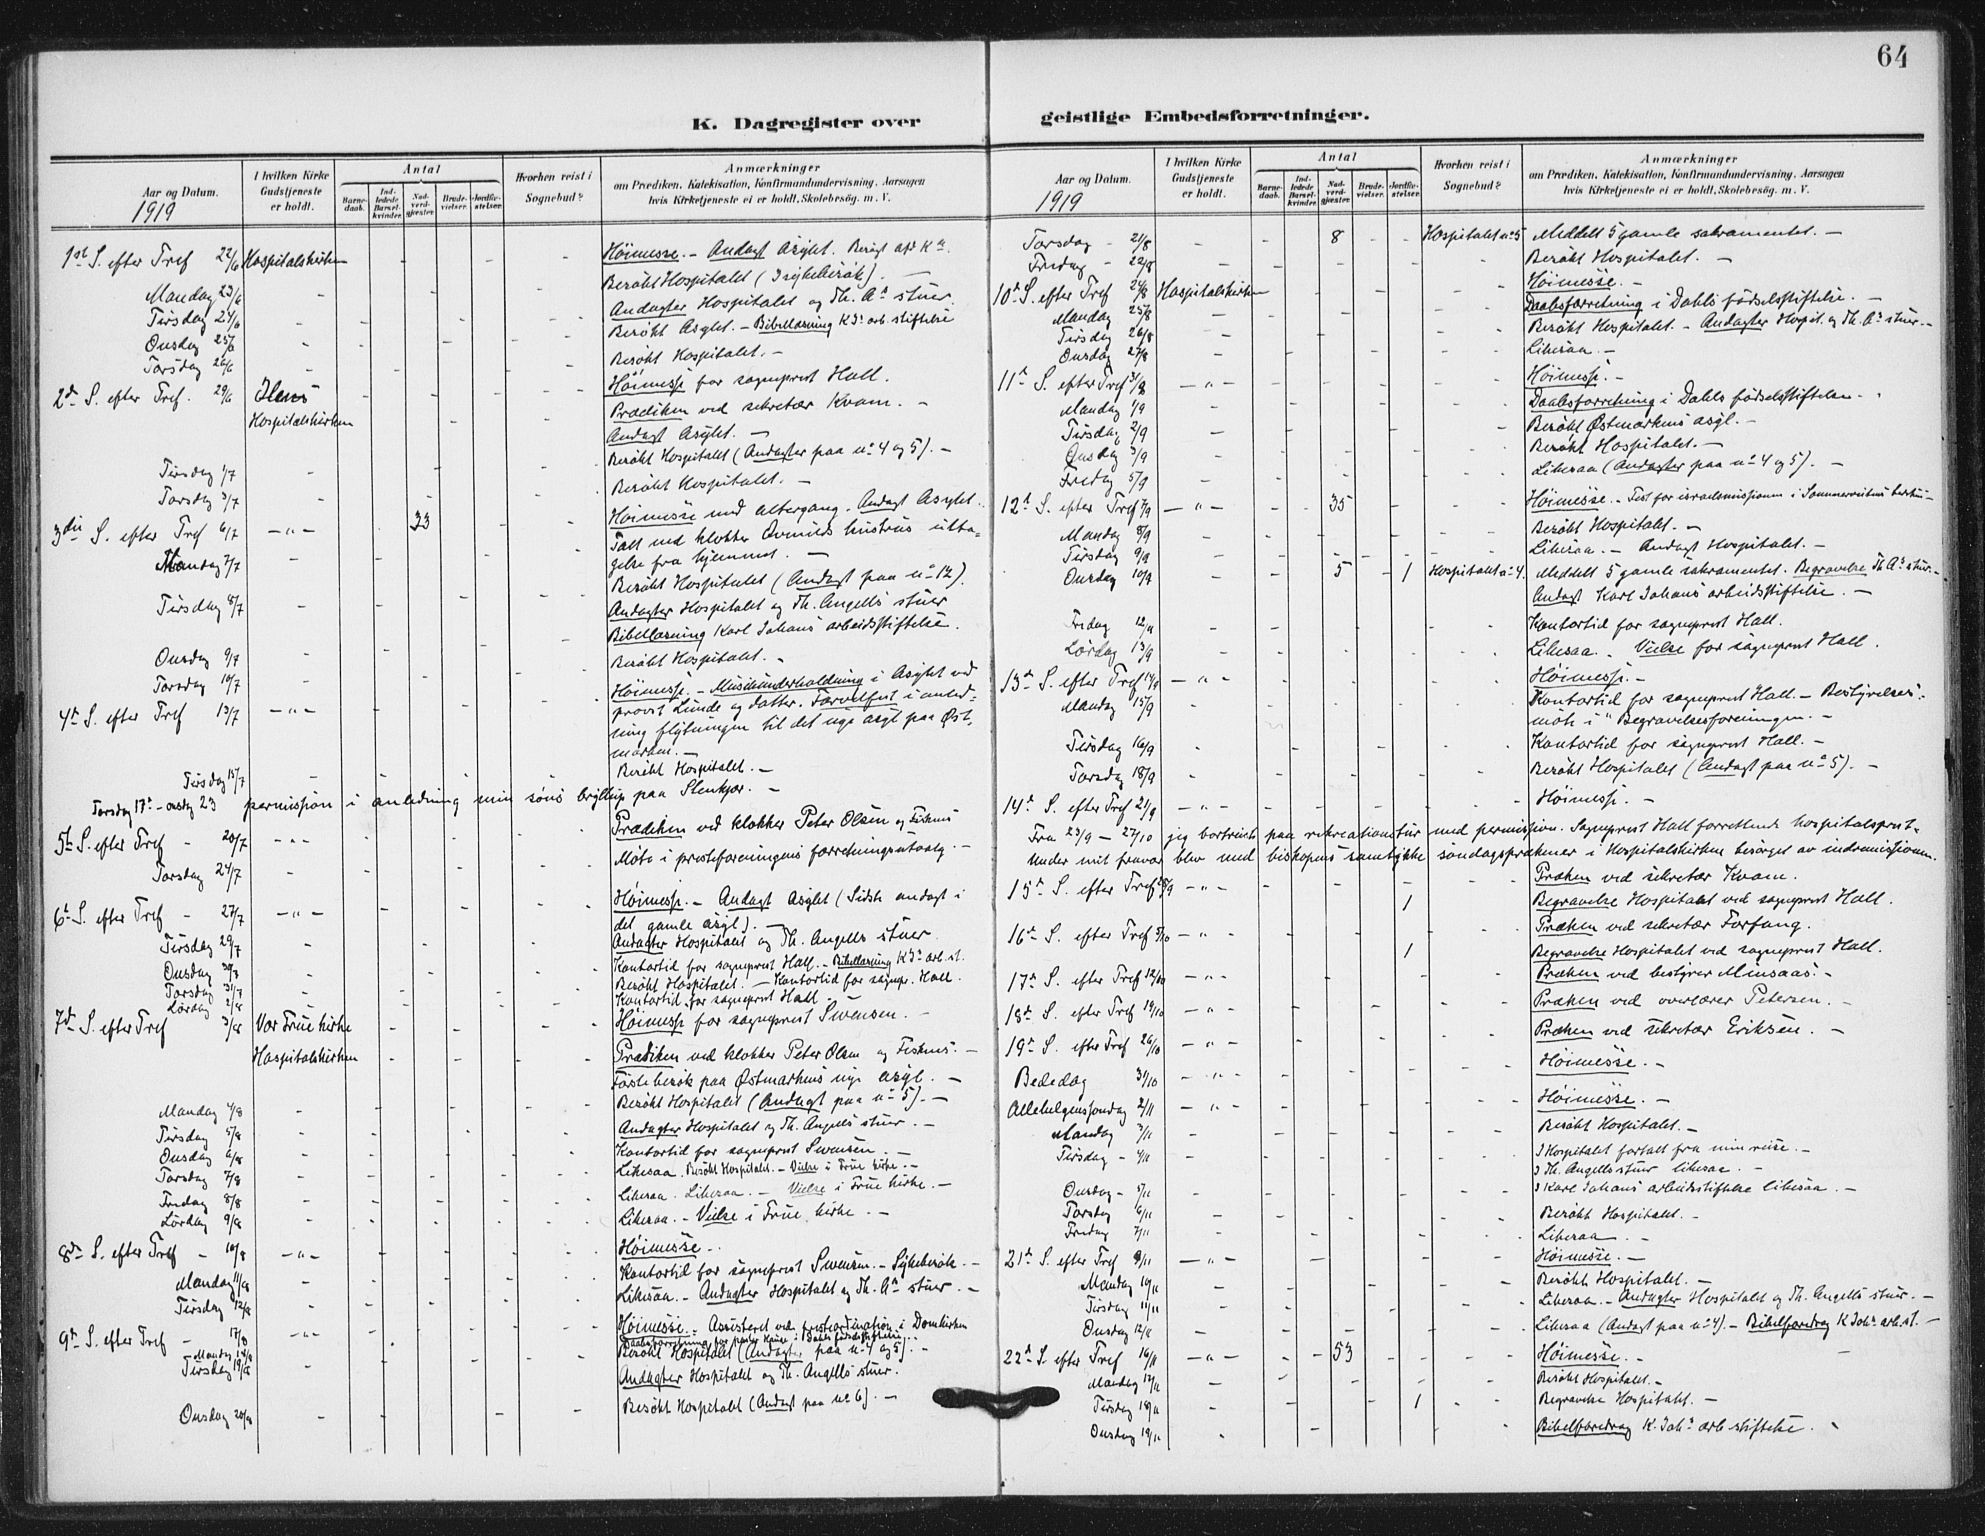 64
K. Dagregister over
Aar og Datum.
1919
I hvilken Kirke Gudstjeneste er holdt.
Antal
Barnedaab.
Indledede Barselkvinder.
Nadverdgjester.
Brudevielser.
Jordfæstelser.
Hvorhen reist i Sognebud?
Anmærkninger
om Prædiken, Katekisation, Konfirmandundervisning, Aarsagen
hvis Kirketjeneste ei er holdt, Skolebesøg. m. V.
1ste S. efter Tref 22/6 Hospitalskirken - - - Høimesse. - Andagt Asylet.
Mandag 23/6 - - - Besøkt Hospitalet (Sykebesøk). -
Tirsdag 24/6 - - - Andagter Hospitalet og Th. As stuer.
Onsdag 25/6 - - - Besøkt Asylet. - Bibellæsning K Js arb. stiftelse
Torsdag 26/6 - - - Besøkt Hospitalet. -
2den S. efter Tref. 29/6 Ilens - - - Høimesse for sogneprest Hall.
Hospitalskirken - - - Prædiken ved sekretær Kvam. -
Andagt Asylet. -
Tirsdag 1/7 - - - Besøkt Hospitalet (Andagter paa no 4 og 5). -
Torsdag 3/7 - - - Besøkt Hospitalet. -
3die S. efter Tref 6/7 - " - 33 - - Høimesse med altergang. Andagt Asylet.
Talt ved klokker hustrus utta-
gelse fra hjemmet. -
Mandag 7/7 - - - Besøkt Hospitalet (Andagt paa no 12).
Tirsdag 8/7 - - - Andagter Hospitalet og Th. Angells stuer
Bibellæsning Karl Johans arbeidsstiftelse.
Onsdag 9/7
Torsdag 10/7 - - - Besøkt Hospitalet. -
4de S. efter Tref 13/7 - " - - - Høimesse. - Musikunderholdning i Asylet ved
provst Lunde og datter. Farvelfest i anled-
ning flytningen til det nye asyl paa Øst-
marken. -
Tirsdag 15/7 - - - Besøkt Hospitalet. -
Torsdag 17de - onsdag 23 permission i anledning min søns bryllup paa Stenkjær. -
5te S. efter Tref - 20/7 - " - - - Prædiken ved klokker Peter Olsen og
Torsdag 24/7 - - - Møte i presteforeningens forretningsutvalg. -
6te S. efter Tref - 27/7 - " - - - Høimesse. - Andagt Asylet (Sidste andagt i
det gamle asyl). -
Tirsdag 29/7 - - - Andagter Hospitalet og Th. Angells stuer.
Onsdag - - - Kontortid for sogneprest Hall. - Bibellæsning K Js arb. st.
Torsdag 31/7 - - - Besøkt Hospitalet. - Kontortid for sognepr. Hall.
Lørdag 2/8 - - - Kontortid for sogneprest Hall. -
7de S. efter Tref 3/8 Vor Frue kirke - - - Høimesse for sogneprest Svensen. -
Hospitalskirken - - - Prædiken ved klokker Peter Olsen og
Første besøk paa Østmarkens nye asyl. -
Mandag 4/8 - - - Besøkt Hospitalet (Andagt paa no 5). -
Tirsdag 5/8 - - - Andagter Hospitalet og Th. Angells stuer. -
Onsdag 6/8 - - - Kontortid for sogneprest Svensen. -
Torsdag 7/8 - - - Likesaa. Besøkt Hospitalet. - Vielse i Frue kirke. -
Fredag 8/8 - - - Likesaa. Likesaa. - Vielse i Frue kirke. -
Lørdag 9/8 - - - Likesaa. - Vielse i Frue kirke. -
8de S. efter Tref - 10/8 - " - - - Høimesse. -
Mandag 11/8 - - - Kontortid for sogneprest Svensen. - Sykebesøk. -
Tirsdag 12/8 - - - Likesaa. - Andagter Hospitalet og Th. As stuer. -
9de S. efter Tref - 17/8 - " - - - Høimesse. - Assisteret ved presteordination i Domkirken
Daabsforretning i Dahls fødselsstiftelse. -
Mandag 18/8 - - - Besøkt Hospitalet (Andagter paa no 4 og 5). -
Tirsdag 19/8 - - - Andagter Hospitalet og Th. Angells stuer.
Onsdag 20/8 - - - Besøkt Hospitalet (Andagt paa no 6). -
geistlige Embedsforretninger.
Aar og Datum.
1919
I hvilken Kirke Gudstjeneste er holdt.
Antal
Barnedaab.
Indledede Barselkvinder.
Nadverdgjester.
Brudevielser.
Jordfæstelser.
Hvorhen reist i Sognebud?
Anmærkninger
om Prædiken, Katekisation, Konfirmandundervisning, Aarsagen
hvis Kirketjeneste ei er holdt, Skolebesøg. m. V.
Torsdag - 21/8 - - 8 - - Hospitalet no 5 Meddelt 5 gamle sakramentet. -
Fredag - 22/8 - - - Besøkt Hospitalet. -
10de S. efter Tref 24/8 Hospitalskirken - - - Høimesse. -
Daabsforretning i Dahls fødselsstiftelse. -
Mandag 25/8
Tirsdag 26/8 - - - Besøkt Hospitalet. - Andagter Hospit. og Th. As stuer. -
Onsdag 27/8 - - - Likesaa. -
11te S. efter Tref 31/8 - " - - - Høimesse. -
Daabsforretning i Dahls fødselsstiftelse. -
Mandag 1/9 - - - Besøkt Østmarkens asyl. -
Tirsdag 2/9 - - - Besøkt Hospitalet. -
Onsdag 3/9 - - - Likesaa (Andagter paa no 4 og 5). -
Fredag 5/9
12te S. efter Tref 7/9 - " - 35 - - Høimesse. - Fest for israelsmissionen i
Mandag 8/9 - - - Besøkt Hospitalet. -
Tirsdag 9/9 - - - Likesaa. - Andagt Hospitalet. -
Onsdag 10/9 - - 5 - 1 Hospitalet no 4. Meddelt 5 gamle sakramentet. Begravelse Th As stuer. -
Andagt Karl Johans arbeidsstiftelse. -
Fredag - - - Kontortid for sogneprest Hall.
Lørdag 13/9 - - - Likesaa. Vielse for sogneprest Hall.
13de S. efter Tref 14/9 - " - - - Høimesse. -
Mandag 15/9 - - - Kontortid for sogneprest Hall. - Bestyrelses-
møte i "Begravelsesforeningen. -
Tirsdag 16/9 - - - Kontortid for sogneprest Hall. -
Torsdag 18/9 - - - Besøkt Hospitalet (Andagt paa no 5). -
14de S. efter Tref 21/9 - " - - - Høimesse. -
Fra 23/9 - 27/10 jeg bortreist paa rekreationstur med permission. Sogneprest Hall forrettende hospitalsprest.
Under mit fravær blev med biskopens samtykke søndagsprækener i Hospitalskirken besørget av indremissionen.
15de S. efter Tref 28/9 - " - - - Præken ved sekretær Kvam.
1 Begravelse Hospitalet ved sogneprest Hall.
16de S. efter Tref 5/10 - " - - - Præken ved sekretær Forfang.
1 Begravelse Hospitalet ved sogneprest Hall.
17de S. efter Tref 12/10 - " - - - Præken ved bestyrer Minsaas. -
18de S. efter Tref 19/10 - " - - - Præken ved overlærer Petersen. -
19de S. efter Tref 26/10 - " - - - Præken ved sekretær Eriksen. -
Bededag 31/10 - " - - - Høimesse. -
Allehelgenssøndag 2/11 - " - - - Høimesse. -
Mandag 3/11 - - - Besøkt Hospitalet. -
Tirsdag - 4/11 - - - I Hospitalet fortalt fra min reise. -
I Th. Angells stuer likesaa. -
Onsdag - 5/11 - - - I Karl Johans arbeidsstiftelse likesaa. -
Torsdag 6/11 - - - Besøkt Hospitalet. -
Fredag 7/11 - - - Likesaa. -
21de S. efter Tref 9/11 - " - - - Høimesse. -
Mandag 10/11 - - - Besøkt Hospitalet. -
Tirsdag 11/11 - - - Likesaa. - Andagter Hospitalet og Th. Angells stuer. -
Onsdag 12/11 - - - Likesaa (Andagt paa no 4). - Bibelforedrag K Johs arb. st. -
22de S. efter Tref 16/11 - " - 53 - - Høimesse. -
Mandag 17/11 - - - Besøkt Hospitalet. -
Tirsdag 18/11 - - - 1 Begravelse Hospitalet. -
Onsdag 19/11 - - - Bibelforedrag K. Johs arb. stiftelse.